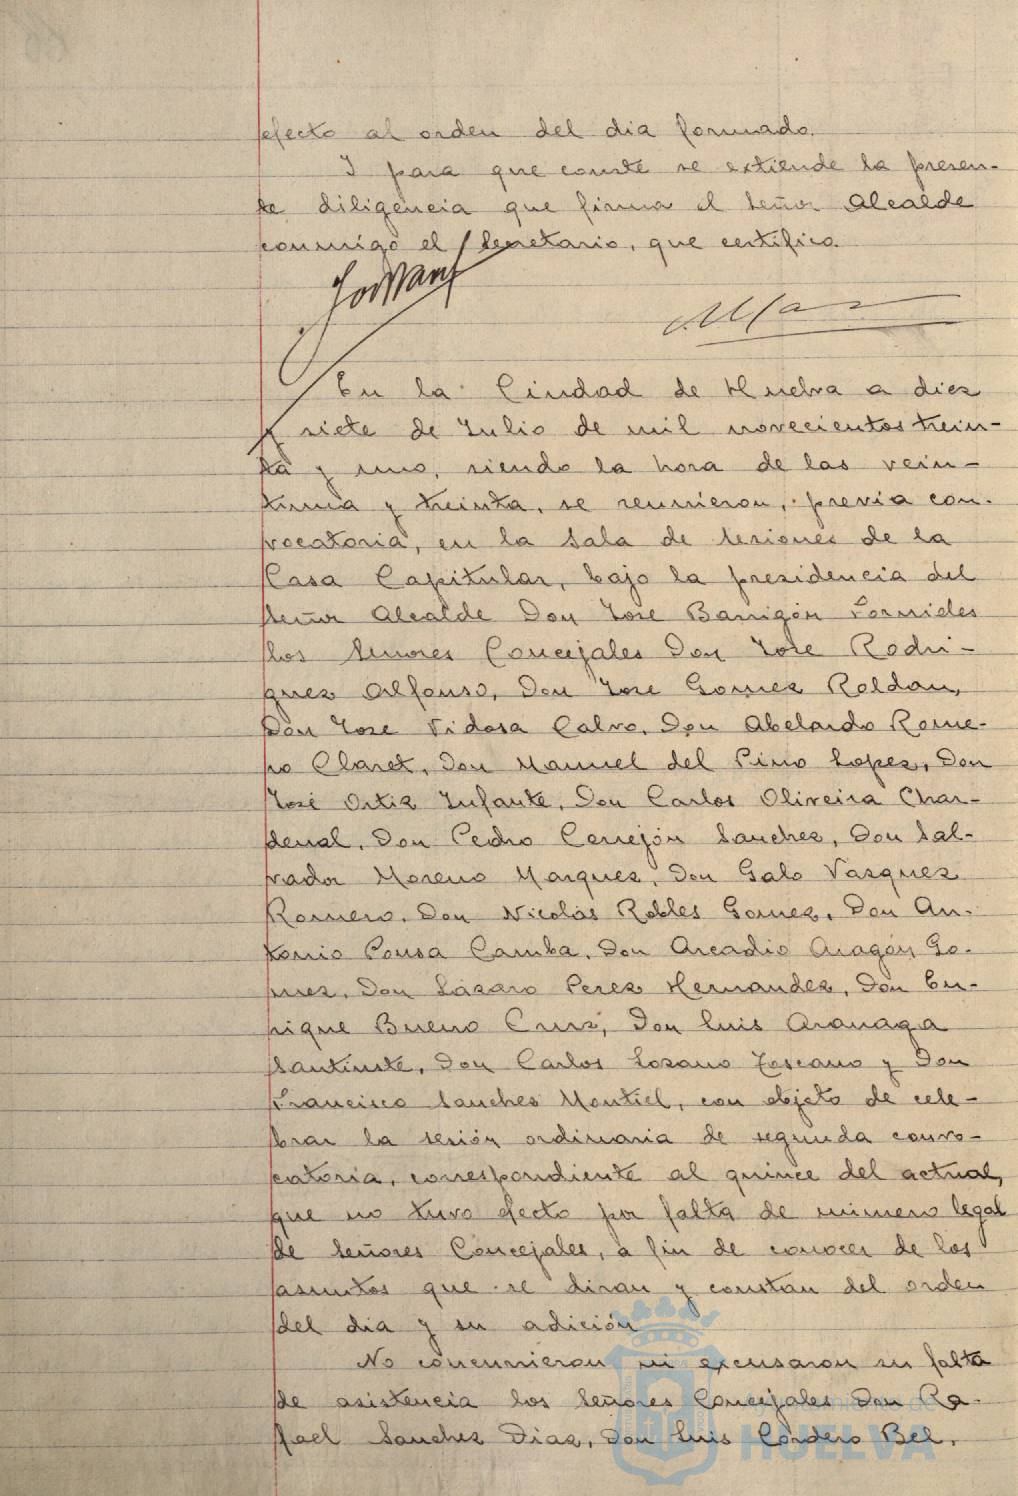 efecto al orden del dia formado.
Y para que conste se extiende la presen-
te diligencia que firma el Señor Alcalde
conmigo el Secretario, que certifico.
En la Ciudad de Huelva a diez
y siete de Julio de mil novecientos trein-
ta y uno, siendo la hora de las vein-
tiuna y treinta, se reunieron, previa con-
vocatoria, en la Sala de Sesiones de la
Casa Capitular, bajo la presidencia del
Señor Alcalde Don José Barrigón Fornieles
los Señores Concejales Don José Rodri-
guez Alfonso, Don Jose Gomez Roldan,
Don Jose Vidosa Calvo, Don Abelardo Rome-
ro Claret, Don Manuel del Pino Lopez, Don
José Ortiz Infante, Don Carlos Oliveira Char-
denal, Don Pedro Cerrejón Sanchez, Don Sal-
vador Moreno Marquez, Don Galo Vazquez
Romero, Don Nicolás Robles Gomez, Don An-
tonio Pousa Camba, Don Arcadio Aragón Go-
mez, Don Lázaro Perez Hernandez, Don En-
rique Bueno Cruz, Don Luis Aranaga
Santiuste, Don Carlos Lozano Toscano y Don
Francisco Sanches Montiel, con objeto de cele-
brar la sesión ordinaria de segunda convo-
catoria, correspondiente al quince del actual,
que no tuvo efecto por falta de número legal
de Señores Concejales, a fin de conocer de los
asuntos que se diran y constan del orden
del dia y su adición
No concurrieron ni excusaron su falta
de asistencia los Señores Concejales Don Ra-
fael Sanchez Diaz, Don Luis Cordero Bel,
Ayuntamiento de
HUELVA